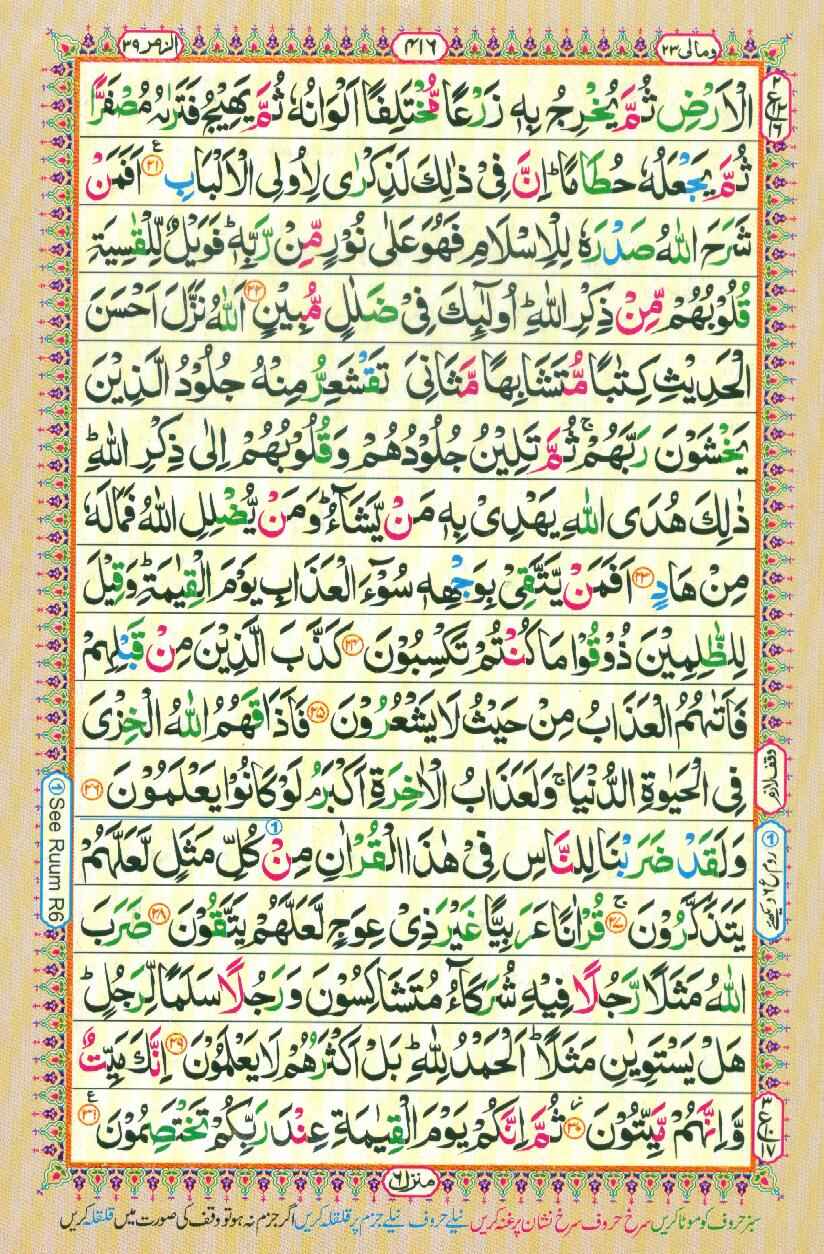 الزمر ٣٩
٤١٦
ومالی ٢٣
الۡاَرۡضِ ثُمَّ یُخۡرِجُ بِهٖ زَرۡعًا مُّخۡتَلِفًا اَلۡوَانُهٗ ثُمَّ یَهِیۡجُ فَتَرٰىهُ مُصۡفَرًّا
ثُمَّ یَجۡعَلُهٗ حُطَامًا ؕ اِنَّ فِیۡ ذٰلِكَ لَذِكۡرٰی لِاُولِی الۡاَلۡبَابِ ﴿٢١﴾ اَفَمَنۡ
شَرَحَ اللّٰهُ صَدۡرَهٗ لِلۡاِسۡلَامِ فَهُوَ عَلٰی نُوۡرٍ مِّنۡ رَّبِّهٖ ؕ فَوَیۡلٌ لِّلۡقٰسِیَةِ
قُلُوۡبُهُمۡ مِّنۡ ذِكۡرِ اللّٰهِ ؕ اُولٰٓئِكَ فِیۡ ضَلٰلٍ مُّبِیۡنٍ ﴿٢٢﴾ اَللّٰهُ نَزَّلَ اَحۡسَنَ
الۡحَدِیۡثِ كِتٰبًا مُّتَشَابِهًا مَّثَانِیَ تَقۡشَعِرُّ مِنۡهُ جُلُوۡدُ الَّذِیۡنَ
یَخۡشَوۡنَ رَبَّهُمۡ ۚ ثُمَّ تَلِیۡنُ جُلُوۡدُهُمۡ وَقُلُوۡبُهُمۡ اِلٰی ذِكۡرِ اللّٰهِ ؕ
ذٰلِكَ هُدَی اللّٰهِ یَهۡدِیۡ بِهٖ مَنۡ یَّشَآءُ ؕ وَمَنۡ یُّضۡلِلِ اللّٰهُ فَمَا لَهٗ
مِنۡ هَادٍ ﴿٢٣﴾ اَفَمَنۡ یَّتَّقِیۡ بِوَجۡهِهٖ سُوۡٓءَ الۡعَذَابِ یَوۡمَ الۡقِیٰمَةِ ؕ وَقِیۡلَ
لِلظّٰلِمِیۡنَ ذُوۡقُوۡا مَا كُنۡتُمۡ تَكۡسِبُوۡنَ ﴿٢٤﴾ كَذَّبَ الَّذِیۡنَ مِنۡ قَبۡلِهِمۡ
فَاَتٰىهُمُ الۡعَذَابُ مِنۡ حَیۡثُ لَا یَشۡعُرُوۡنَ ﴿٢٥﴾ فَاَذَاقَهُمُ اللّٰهُ الۡخِزۡیَ
فِی الۡحَیٰوةِ الدُّنۡیَا ۚ وَلَعَذَابُ الۡاٰخِرَةِ اَكۡبَرُ ۘ لَوۡ كَانُوۡا یَعۡلَمُوۡنَ ﴿٢٦﴾
وَلَقَدۡ ضَرَبۡنَا لِلنَّاسِ فِیۡ هٰذَا الۡقُرۡاٰنِ مِنۡ كُلِّ مَثَلٍ لَّعَلَّهُمۡ
یَتَذَكَّرُوۡنَ ﴿٢٧﴾ قُرۡاٰنًا عَرَبِیًّا غَیۡرَ ذِیۡ عِوَجٍ لَّعَلَّهُمۡ یَتَّقُوۡنَ ﴿٢٨﴾ ضَرَبَ
اللّٰهُ مَثَلًا رَّجُلًا فِیۡهِ شُرَكَآءُ مُتَشَاكِسُوۡنَ وَرَجُلًا سَلَمًا لِّرَجُلٍ ؕ
هَلۡ یَسۡتَوِیٰنِ مَثَلًا ؕ اَلۡحَمۡدُ لِلّٰهِ ۚ بَلۡ اَكۡثَرُهُمۡ لَا یَعۡلَمُوۡنَ ﴿٢٩﴾ اِنَّكَ مَیِّتٌ
وَّاِنَّهُمۡ مَّیِّتُوۡنَ ﴿٣٠﴾ ثُمَّ اِنَّكُمۡ یَوۡمَ الۡقِیٰمَةِ عِنۡدَ رَبِّكُمۡ تَخۡتَصِمُوۡنَ ﴿٣١﴾
وقف لازم
① روم ع ٦ دیکھئے
① See Ruum R6
منزل ٦
سبز حروف کو موٹا کریں سرخ حروف سرخ نشان پر غنہ کریں نیلے حروف نیلے جزم پر قلقلہ کریں اگر جزم نہ ہو تو وقف کی صورت میں قلقلہ کریں